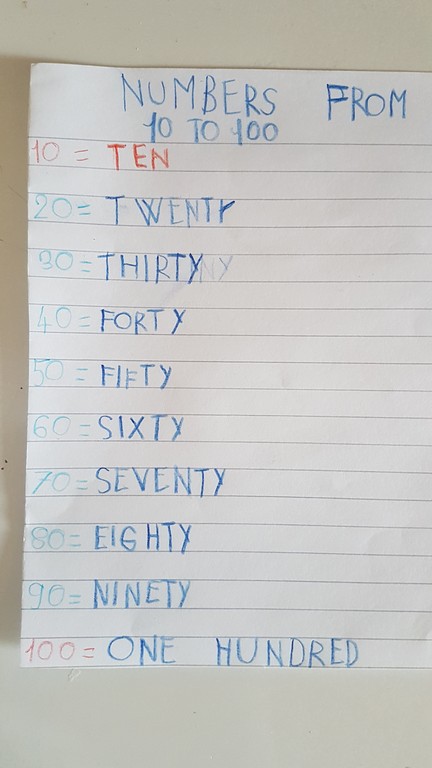 NUMBERS FROM
10 TO 100
10 = TEN
20 = TWENTY
30 = THIRTY
40 = FORTY
50 = FIFTY
60 = SIXTY
70 = SEVENTY
80 = EIGHTY
90 = NINETY
100 = ONE HUNDRED